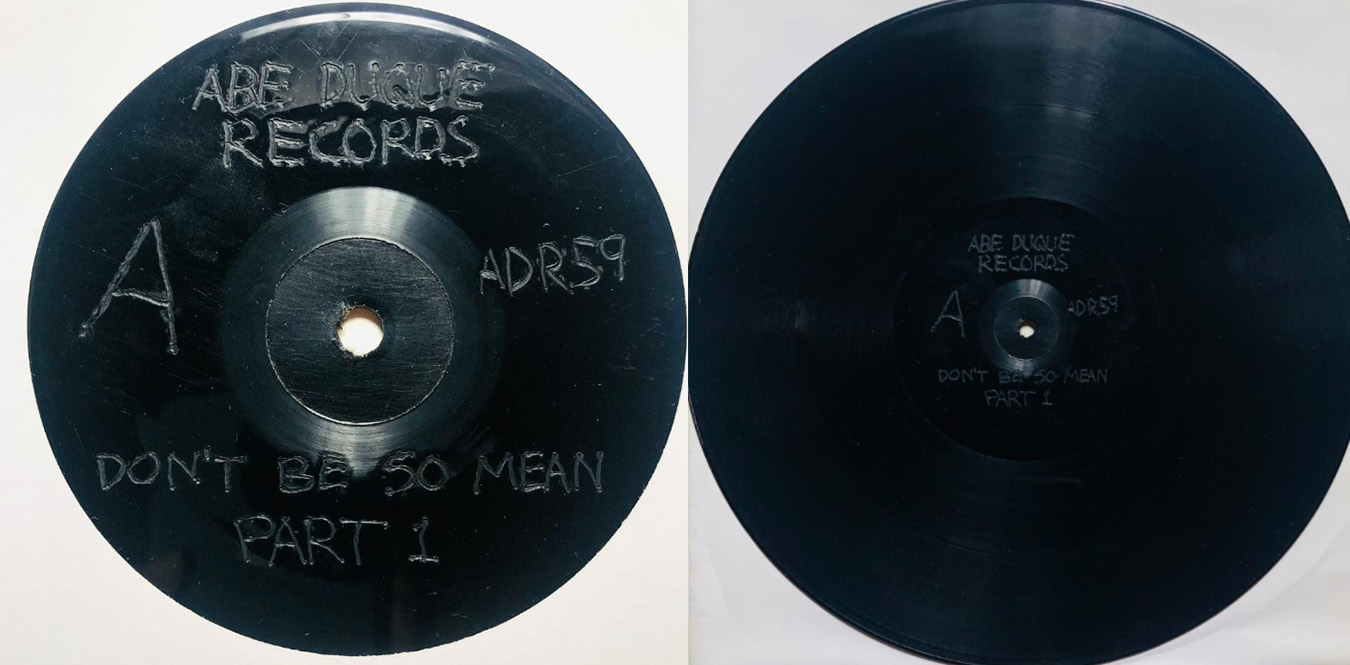 ABE DUQUE
RECORDS
A
ADR59
DON'T BE SO MEAN
PART 1
ABE DUQUE
RECORDS
A
ADR59
DON'T BE SO MEAN
PART 1